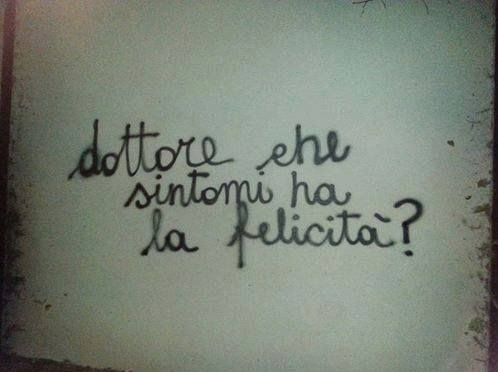 dottore che
sintomi ha
la felicità?